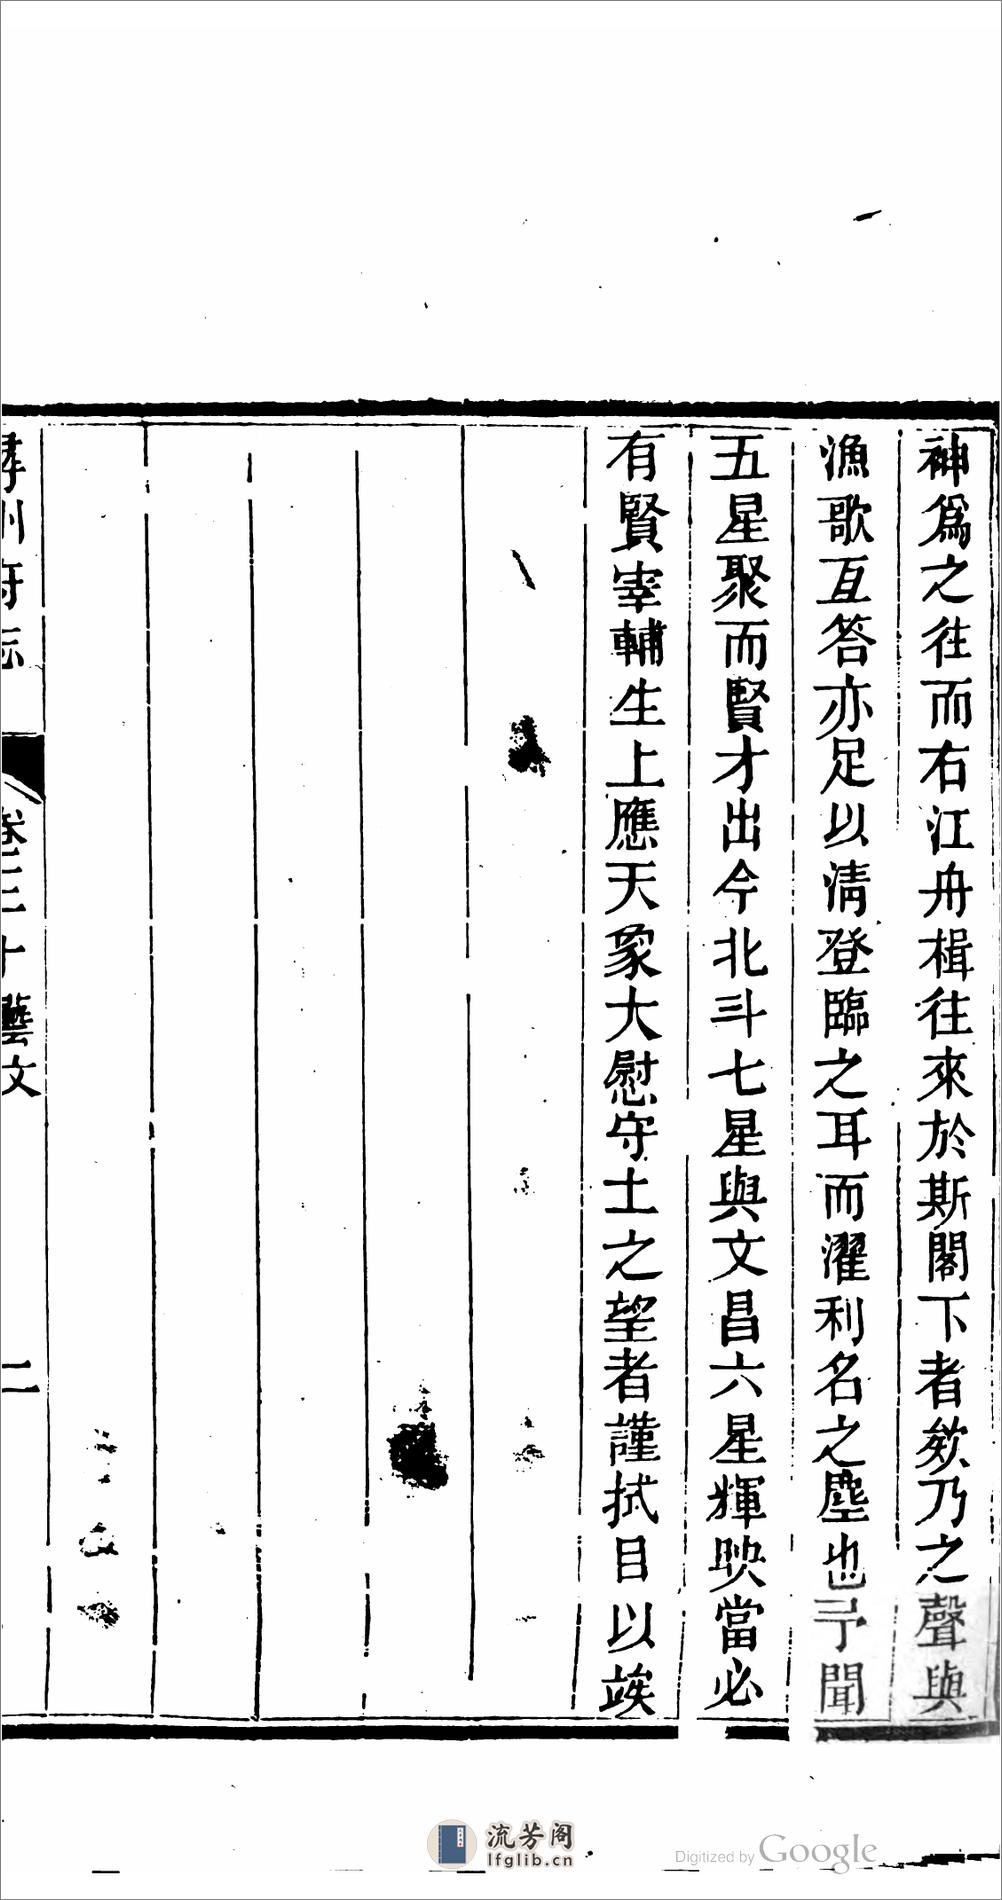 神爲之往而右江舟楫往來於斯閣下者欸乃之聲與
漁歌互答亦足以清登臨之耳而濯利名之塵也予聞
五星聚而賢才出今北斗七星與文昌六星輝映當必
有賢宰輔生上應天象大慰守土之望者謹拭目以俟
州府志
卷三十藝文
二
流芳阁
lfglib.cn
Digitized by Google